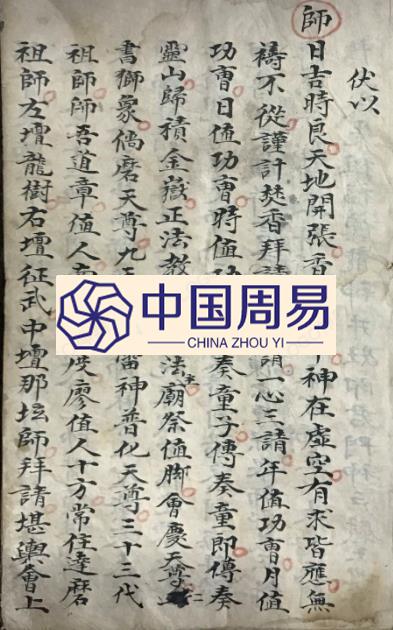 師
伏以
日吉時良天地開張香
神在虛空有求皆應無
禱不從謹計焚香拜請
請一心三請年值功曹月值
功曹日值功曹時值功
奏童子傳奏童即傳奏
靈山歸積金嶽正法教
法主廟祭值脚會慶天尊
書獅象儒磨天尊九天
雷神普化天尊三十三代
祖師師吾道章值人
廖值人十方常住達磨
祖師左壇龍樹右壇征武中壇那坛師拜請堪輿會上
中国周易
CHINA ZHOU YI